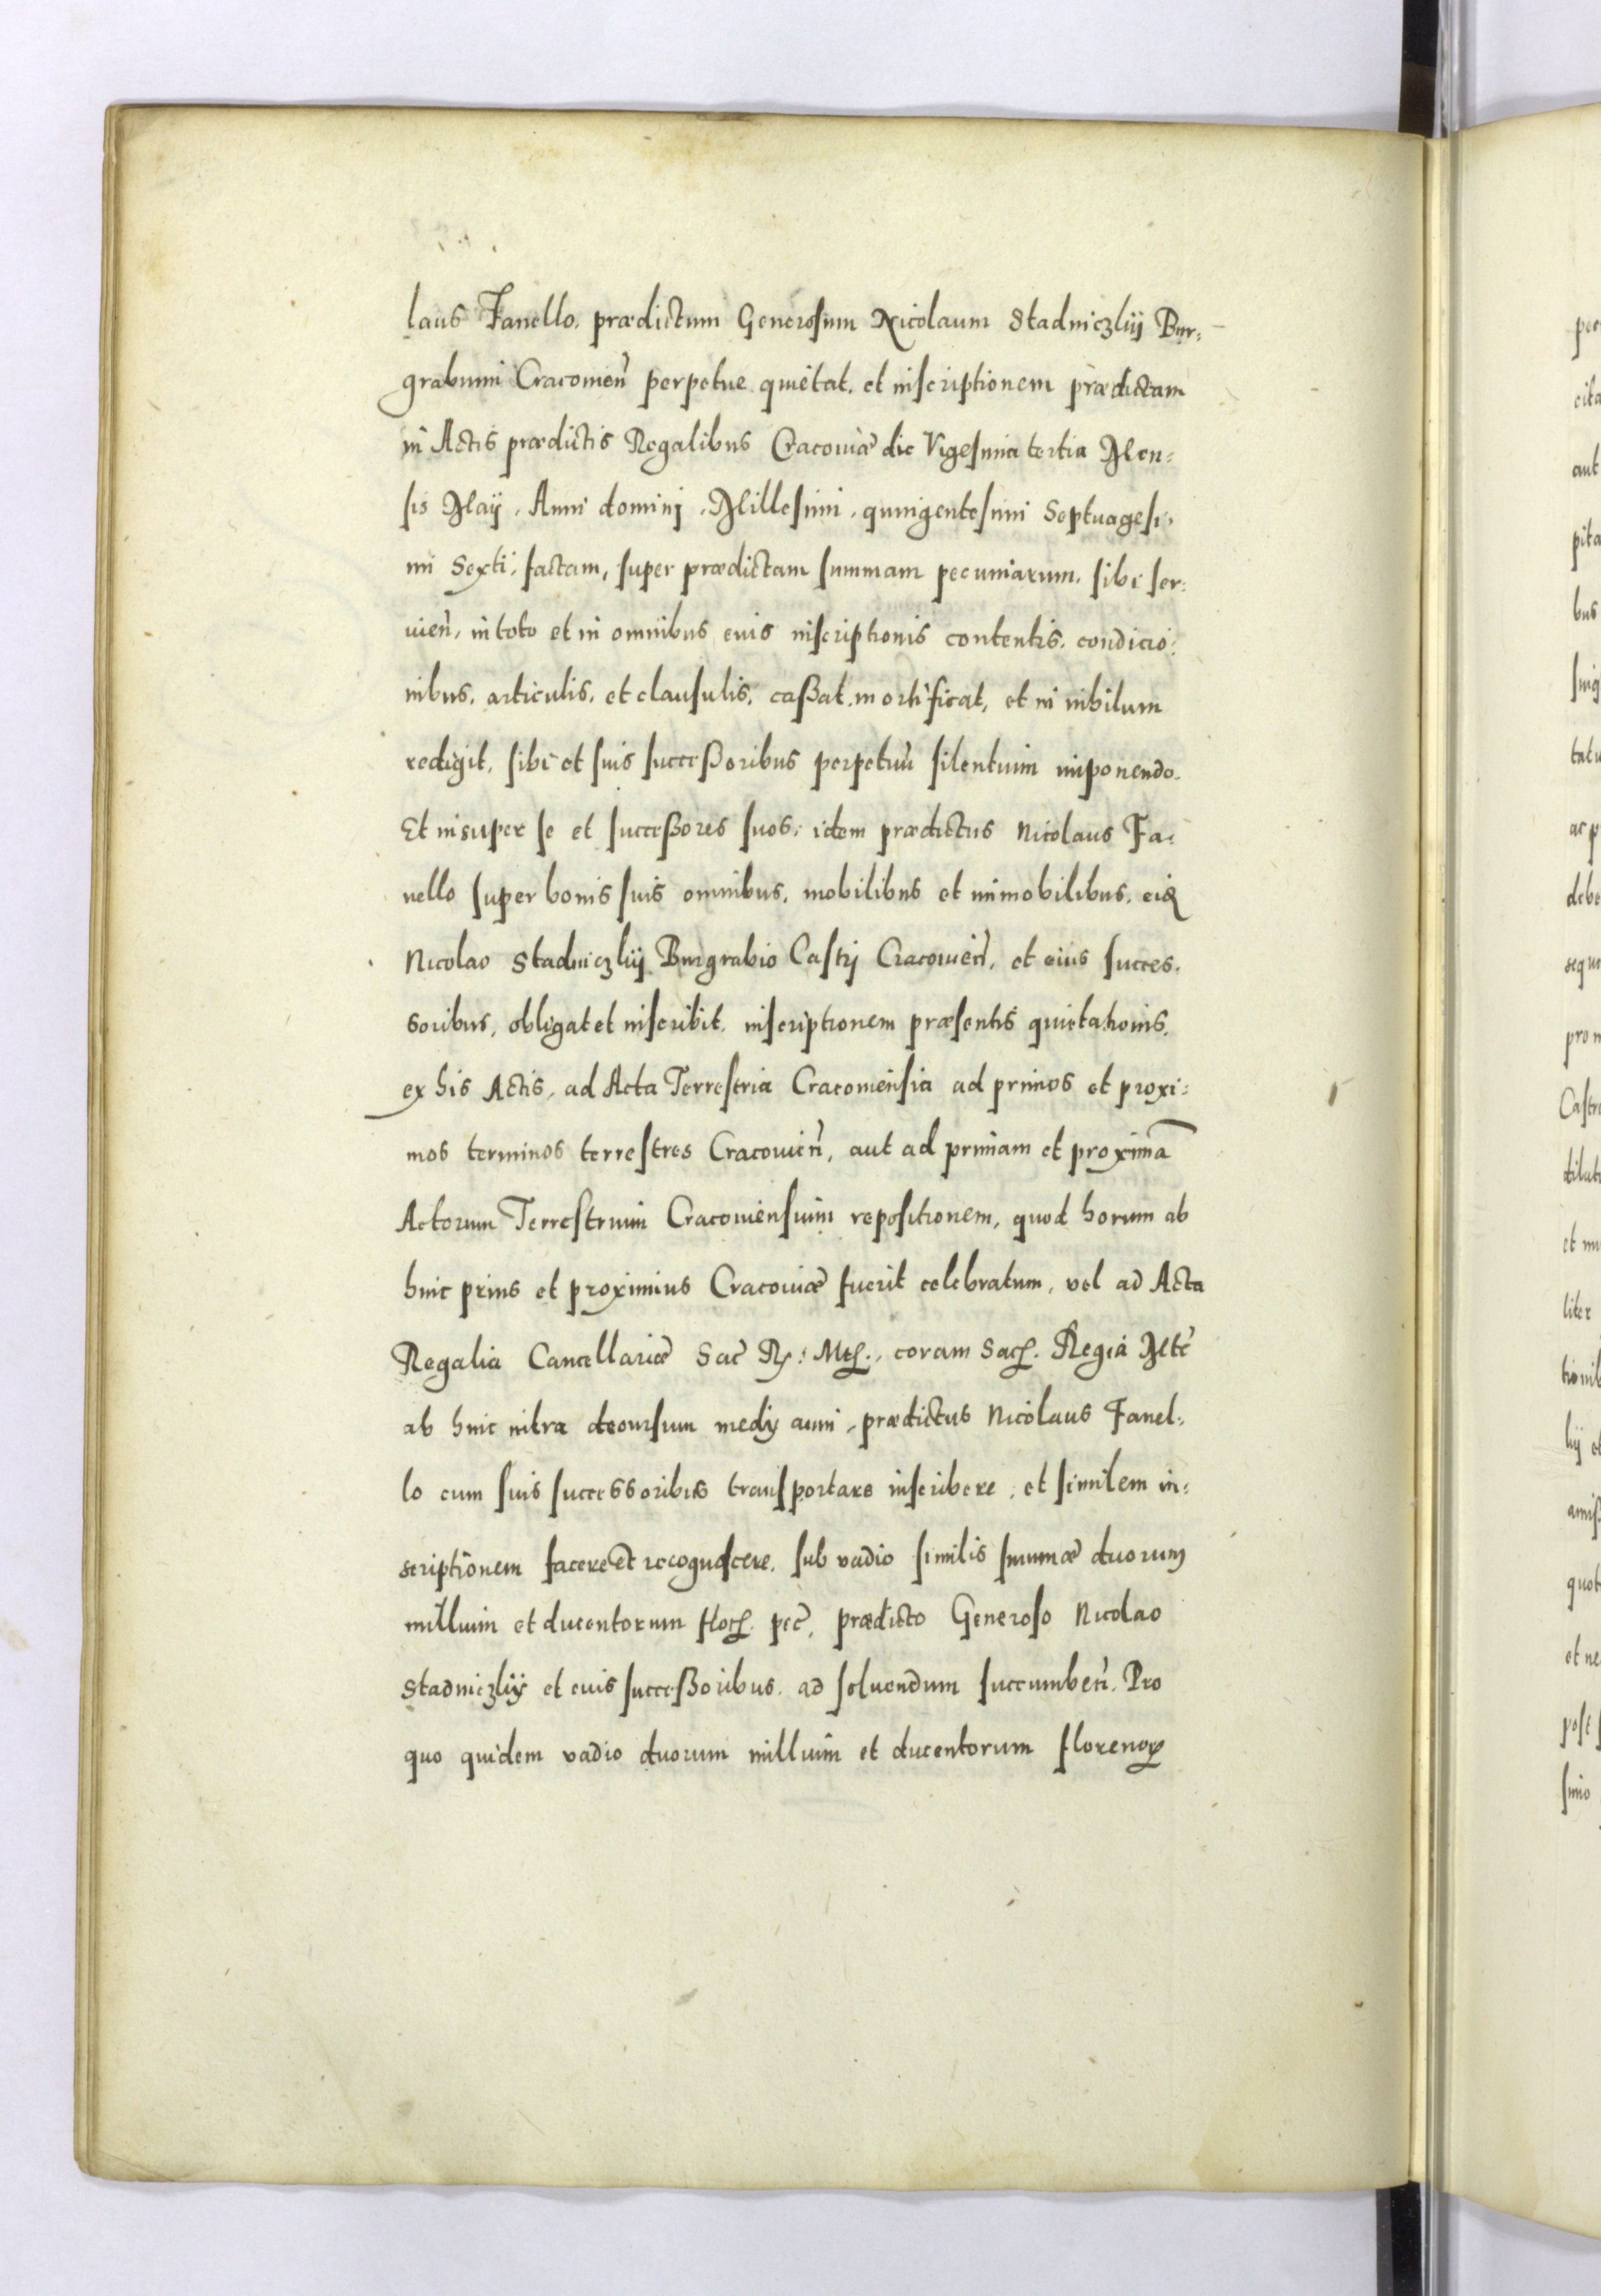 laus Fanello, prædictum Generosum Nicolaum Stadniczkij Bur-
grabium Cracovien̄ perpetue quietat. et inscriptionem prædictam
in Actis prædictis Regalibus Cracoviæ die Vigesima tertia Men-
sis Maij, Anni dominj Millesimi, quingentesimi Septuagesi-
mi Sexti, factam, super prædictam summam pecuniarum, sibi ser-
vien̄, in toto et in omnibus eius inscriptionis contentis, condicio-
nibus, articulis, et clausulis, caßat, mortificat, et in nihilum
redigit, sibi et suis succeßoribus perpetuū silentium imponendo.
Et insuper se et succeßores suos, idem prædictus Nicolaus Fa-
nello super bonis suis omnibus, mobilibus et immobilibus,
Nicolao Stadniczkij Burgrabio Castrj Cracovien̄, et eius succes-
soribus, obligat et inscribit, inscriptionem præsentis quietationis,
ex his Actis, ad Acta Terrestria Cracoviensia ad primos et proxi-
mos terminos terrestres Cracovien̄, aut ad primam et proximā
Actorum Terrestrium Cracoviensium repositionem, quod horum ab
hinc prius et proximius Cracoviæ fuerit celebratum, vel ad Acta
Regalia Cancellariæ Sac̄ R: Mtis, coram Sacra Regia Mte
ab hinc intra decursum medij anni, prædictus Nicolaus Fanel-
lo cum suis successoribus transportare inscribere, et similem in-
scriptionem facere et recognoscere, sub vadio similis summæ duorum
millium et ducentorum flor. pec̄, prædicto Generoso Nicolao
Stadniczkij et eius succeßoribus, ad solvendum succumben̄. Pro
quo quidem vadio duorum millium et ducentorum florenoꝝ